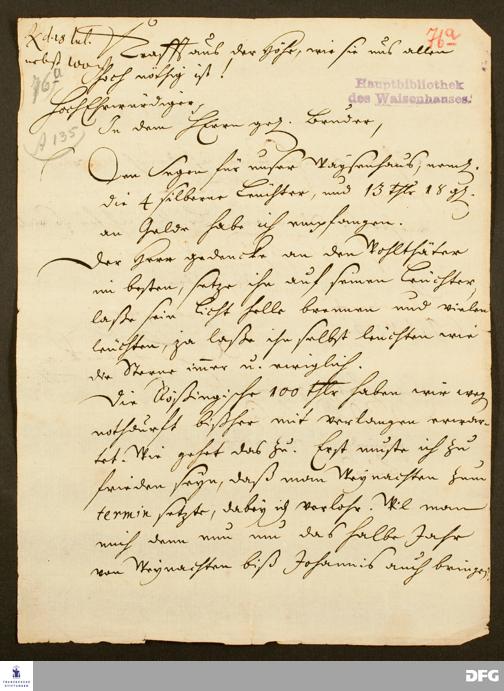 Krafft aus der Höhe, wie sie uns allen
hoch nöthig ist!
76a
76a
A 135
Hauptbibliothek
des Waisenhauses.
HochEhrwürdiger,
In dem HErrn gel. Bruder,
Den Segen für unser Waysenhaus, neml.
die 4 silberne Leuchter, und 13 thlr 18 gl.
an Gelde habe ich empfangen.
Der Herr gedencke an den Wohlthäter
im besten, setze ihn auf seinen Leuchter,
laße sein Licht helle brennen und vielen
leuchten, ja laße ihn selbst leuchten wie
die Sterne immer u. ewiglich.
Die 100 thlr haben wir weg
nothdurfft bißher mit verlangen erwar-
tet. Wie gehet das zu. Erst muste ich zu
frieden seyn, daß man Weynachten zum
termin setzte, dabey ich verlohr. Wil man
mich denn nun um das halbe Jahr
von Weynachten biß Johannis auch bringen
FRANCKESCHE
STIFTUNGEN
DFG